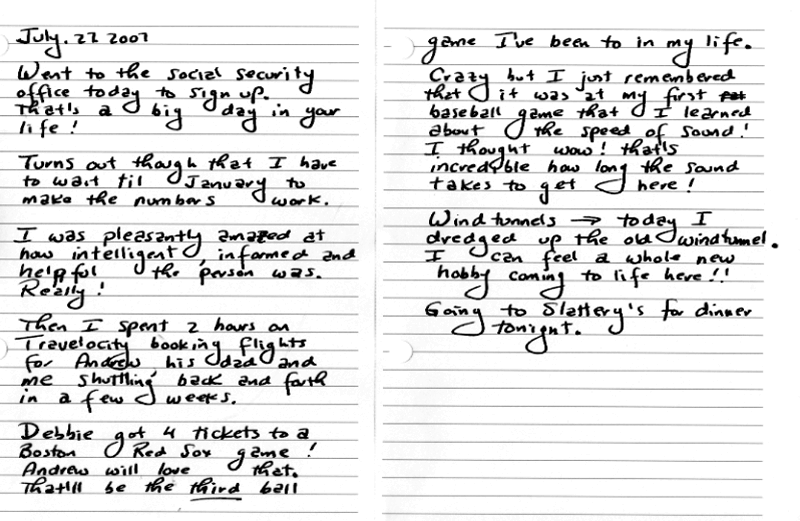 July. 27 2007
Went to the social security
office today to sign up.
That's a big day in your
life!
Turns out though that I have
to wait til January to
make the numbers work.
I was pleasantly amazed at
how intelligent, informed and
helpful the person was.
Really!
Then I spent 2 hours on
Travelocity booking flights
for Andrew, his dad and
me shuttling back and forth
in a few weeks.
Debbie got 4 tickets to a
Boston Red Sox game!
Andrew will love that.
That'll be the third ball
game I've been to in my life.
Crazy but I just remembered
that it was at my first
baseball game that I learned
about the speed of sound!
I thought wow! that's
incredible how long the sound
takes to get here!
Wind tunnels → today I
dredged up the old windtunnel.
I can feel a whole new
hobby coming to life here!!
Going to Slattery's for dinner
tonight.